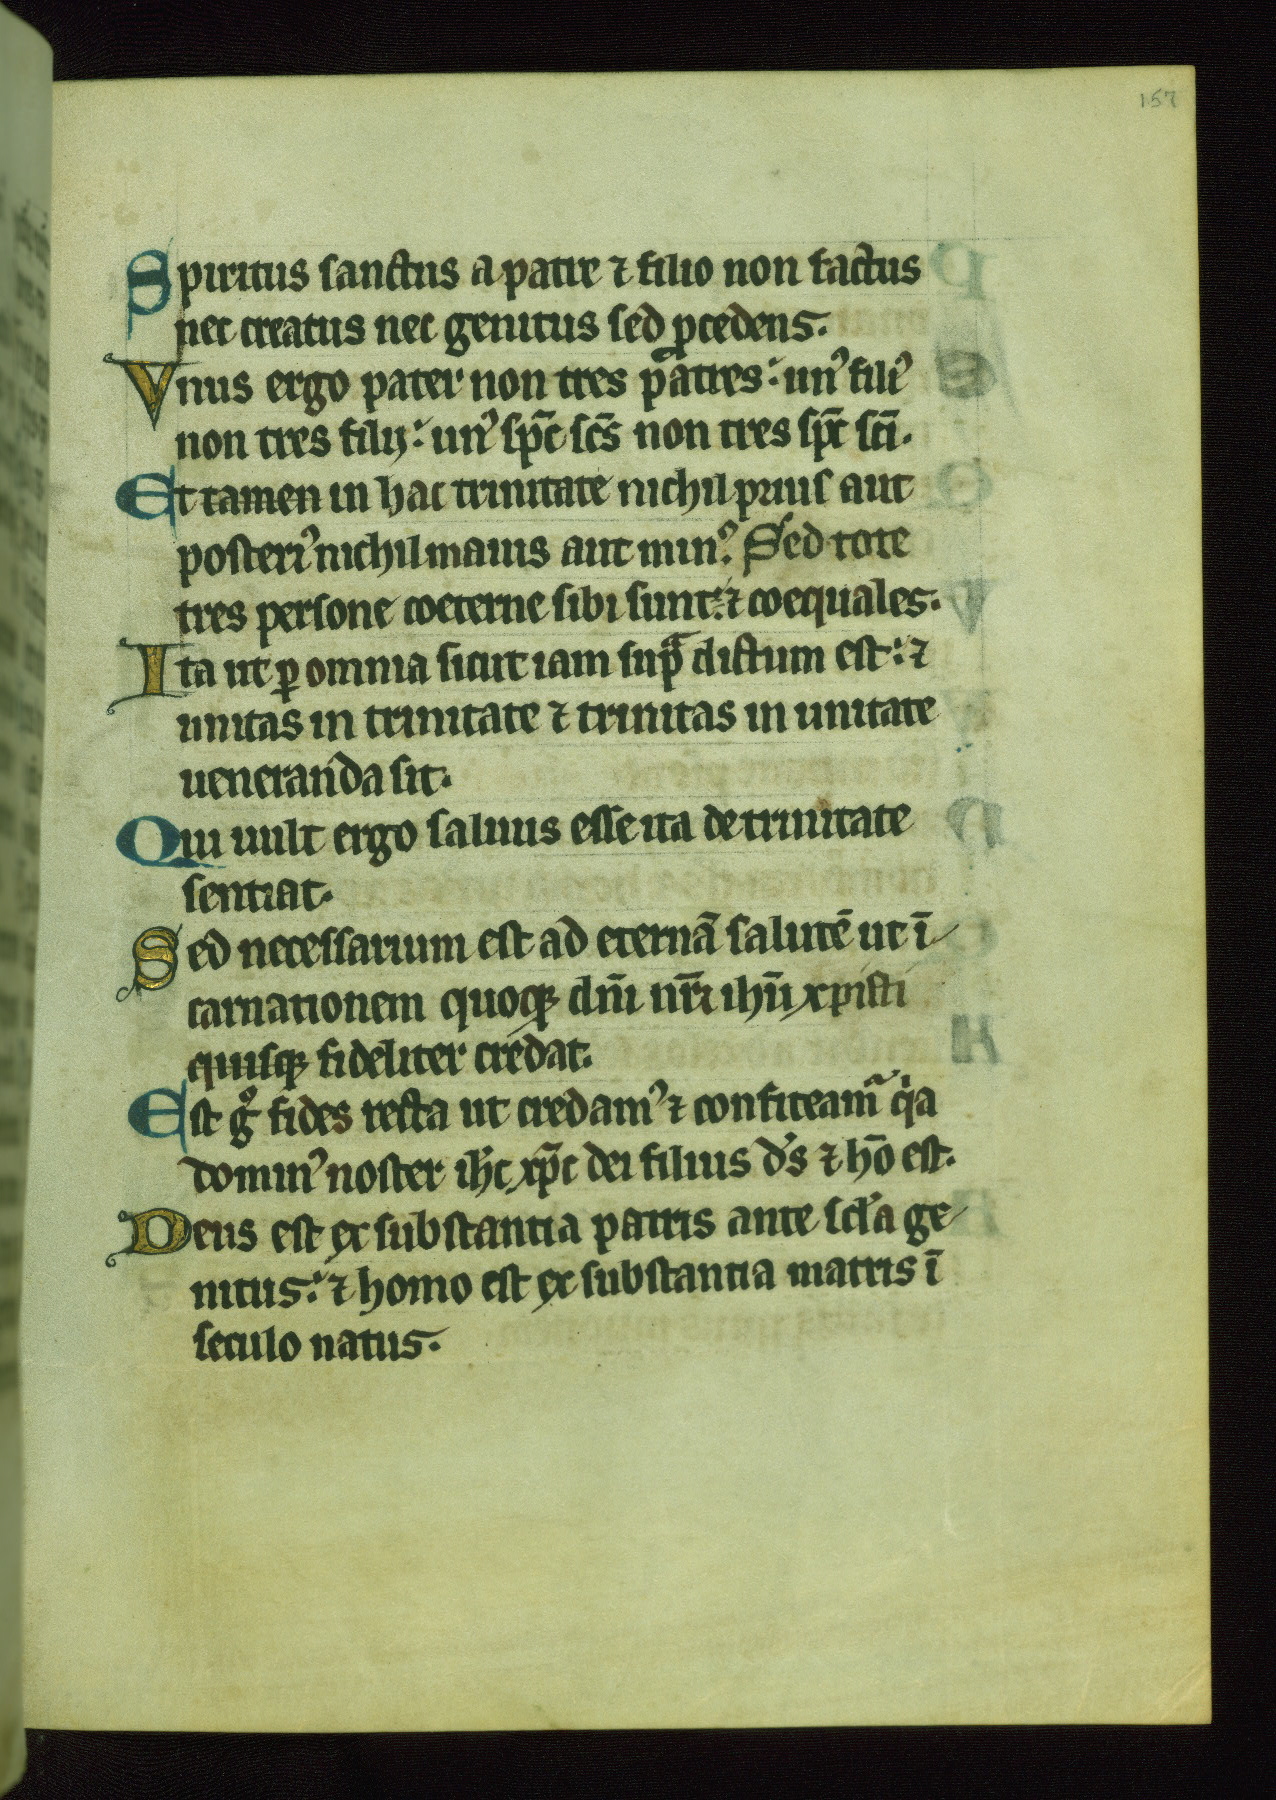 157
Spiritus sanctus a patre ⁊ filio non factus
nec creatus nec genitus sed ꝓcedens.
Vnus ergo pater non tres patres: unꝰ filiꝰ
non tres filij: unꝰ sp̅c sc̅s non tres sp̅c sc̅i.
Et tamen in hac trinitate nichil prius aut
posteriꝰ nichil maius aut minꝰ. Sed tote
tres persone coeterne sibi sunt: ⁊ coequales.
Ita ut ꝑ omnia sicut iam sup̅ dictum est: ⁊
unitas in trinitate ⁊ trinitas in unitate
ueneranda sit.
Qui uult ergo saluus esse ita de trinitate
sentiat.
Sed necessarium est ad eternā salutē ut ī
carnationem quoqꝫ dn̅i nr̅i ihu̅ xpisti
quisqꝫ fideliter credat.
Est gͦ fides recta ut credamꝰ ⁊ confiteam̅ qͥa
dominꝰ noster ih̅c xp̅c dei filius d̅s ⁊ ho̅ est.
Deus est ex substantia patris ante scl̅a ge
nitus: ⁊ homo est ex substantia matris ī
seculo natus.